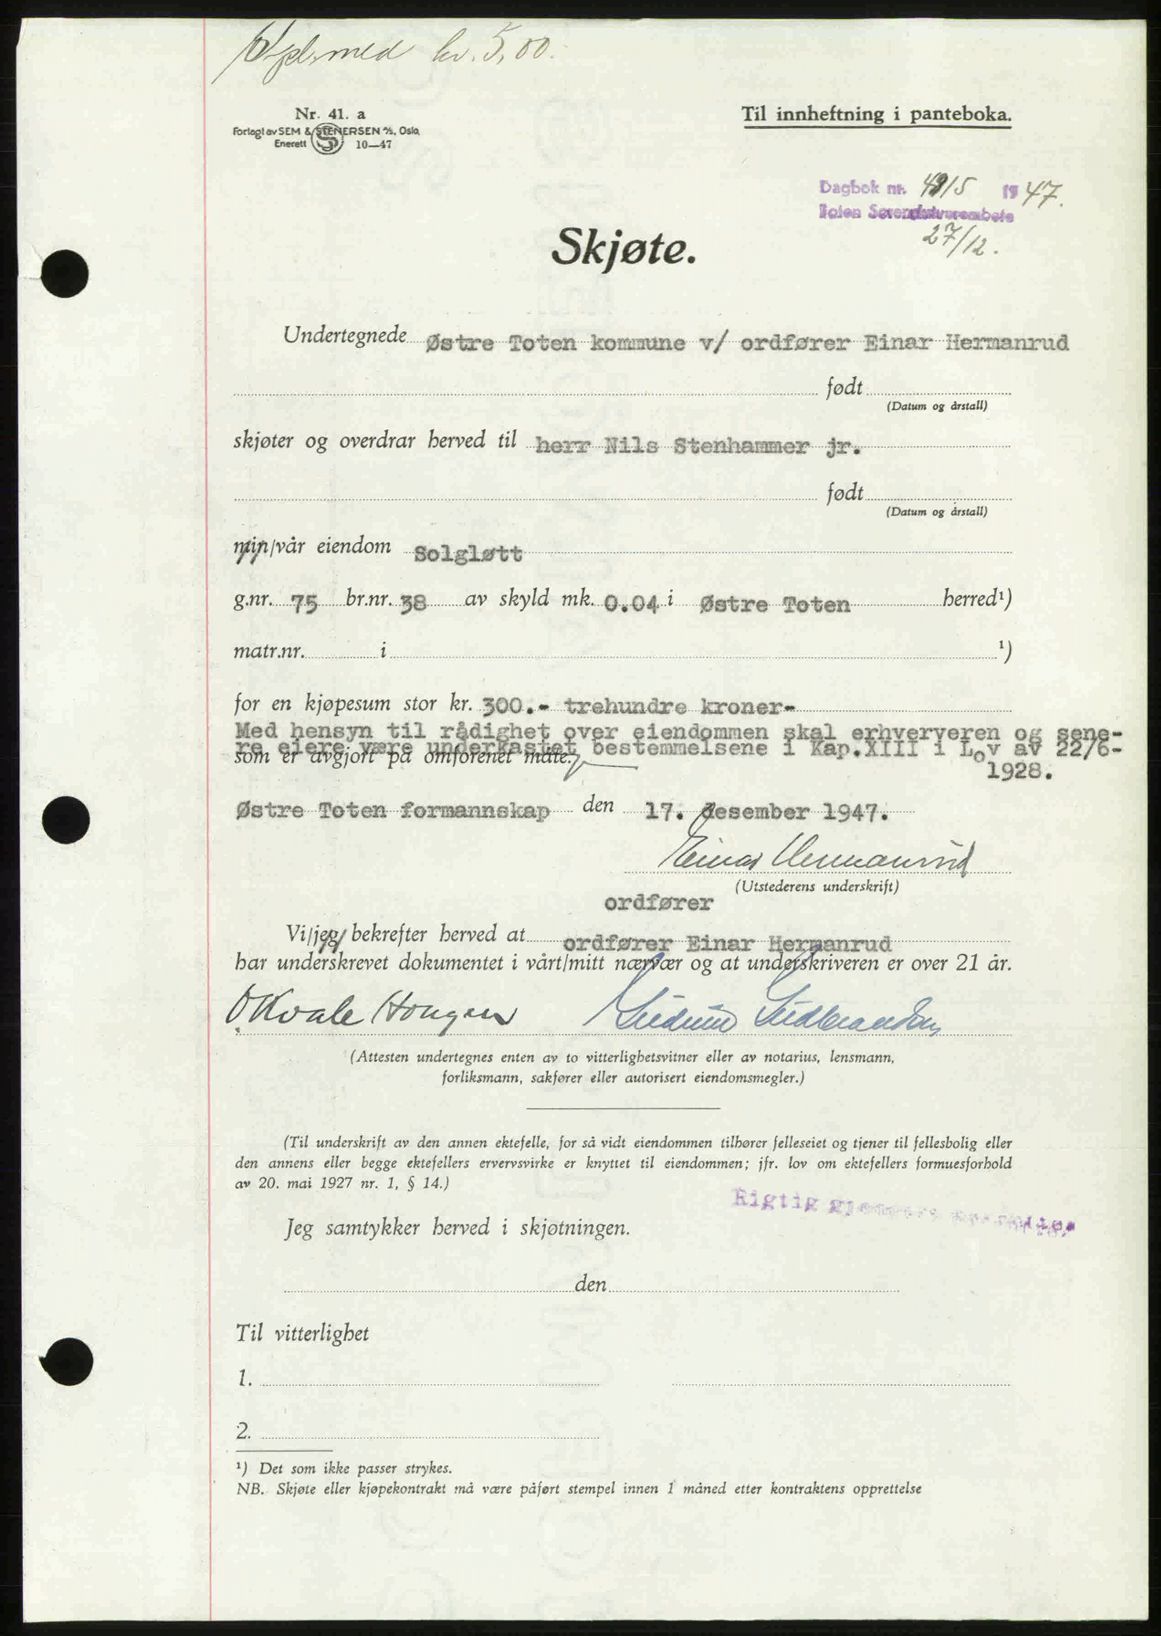 med kr. 5,00.
Nr. 41. a
Forlagt av SEM & STENERSEN A/S, Oslo,
Enerett 10—47
Til innheftning i panteboka.
Dagbok nr. 4915 1947.
Toten Sorenskriverembete
27/12.
Skjøte.
Undertegnede Østre Toten kommune v/ ordfører Einar Hermanrud
født
(Datum og årstall)
skjøter og overdrar herved til herr Nils Stenhammer jr.
født
(Datum og årstall)
min/vår eiendom Solgløtt
g.nr. 75 br.nr. 38 av skyld mk. 0.04 i Østre Toten herred¹)
matr.nr. i ¹)
for en kjøpesum stor kr. 300.- trehundre kroner-
Med hensyn til rådighet over eiendommen skal erhververen og sene-
re eiere være underkastet bestemmelsene i Kap.XIII i Lov av 22/6-
som er avgjort på omforenet måte.
1928.
Østre Toten formannskap den 17. desember 1947.
Einar Hermanrud
(Utstederens underskrift)
ordfører
Vi/jeg bekrefter herved at ordfører Einar Hermanrud
har underskrevet dokumentet i vårt/mitt nærvær og at underskriveren er over 21 år.
O Kvale Haugen Gudrun Gudbrandsen
(Attesten undertegnes enten av to vitterlighetsvitner eller av notarius, lensmann,
forliksmann, sakfører eller autorisert eiendomsmegler.)
(Til underskrift av den annen ektefelle, for så vidt eiendommen tilhører felleseiet og tjener til fellesbolig eller
den annens eller begge ektefellers ervervsvirke er knyttet til eiendommen; jfr. lov om ektefellers formuesforhold
av 20. mai 1927 nr. 1, § 14.)
Rigtig
Jeg samtykker herved i skjøtningen.
den
Til vitterlighet
1.
2.
¹) Det som ikke passer strykes.
NB. Skjøte eller kjøpekontrakt må være påført stempel innen 1 måned etter kontraktens opprettelse